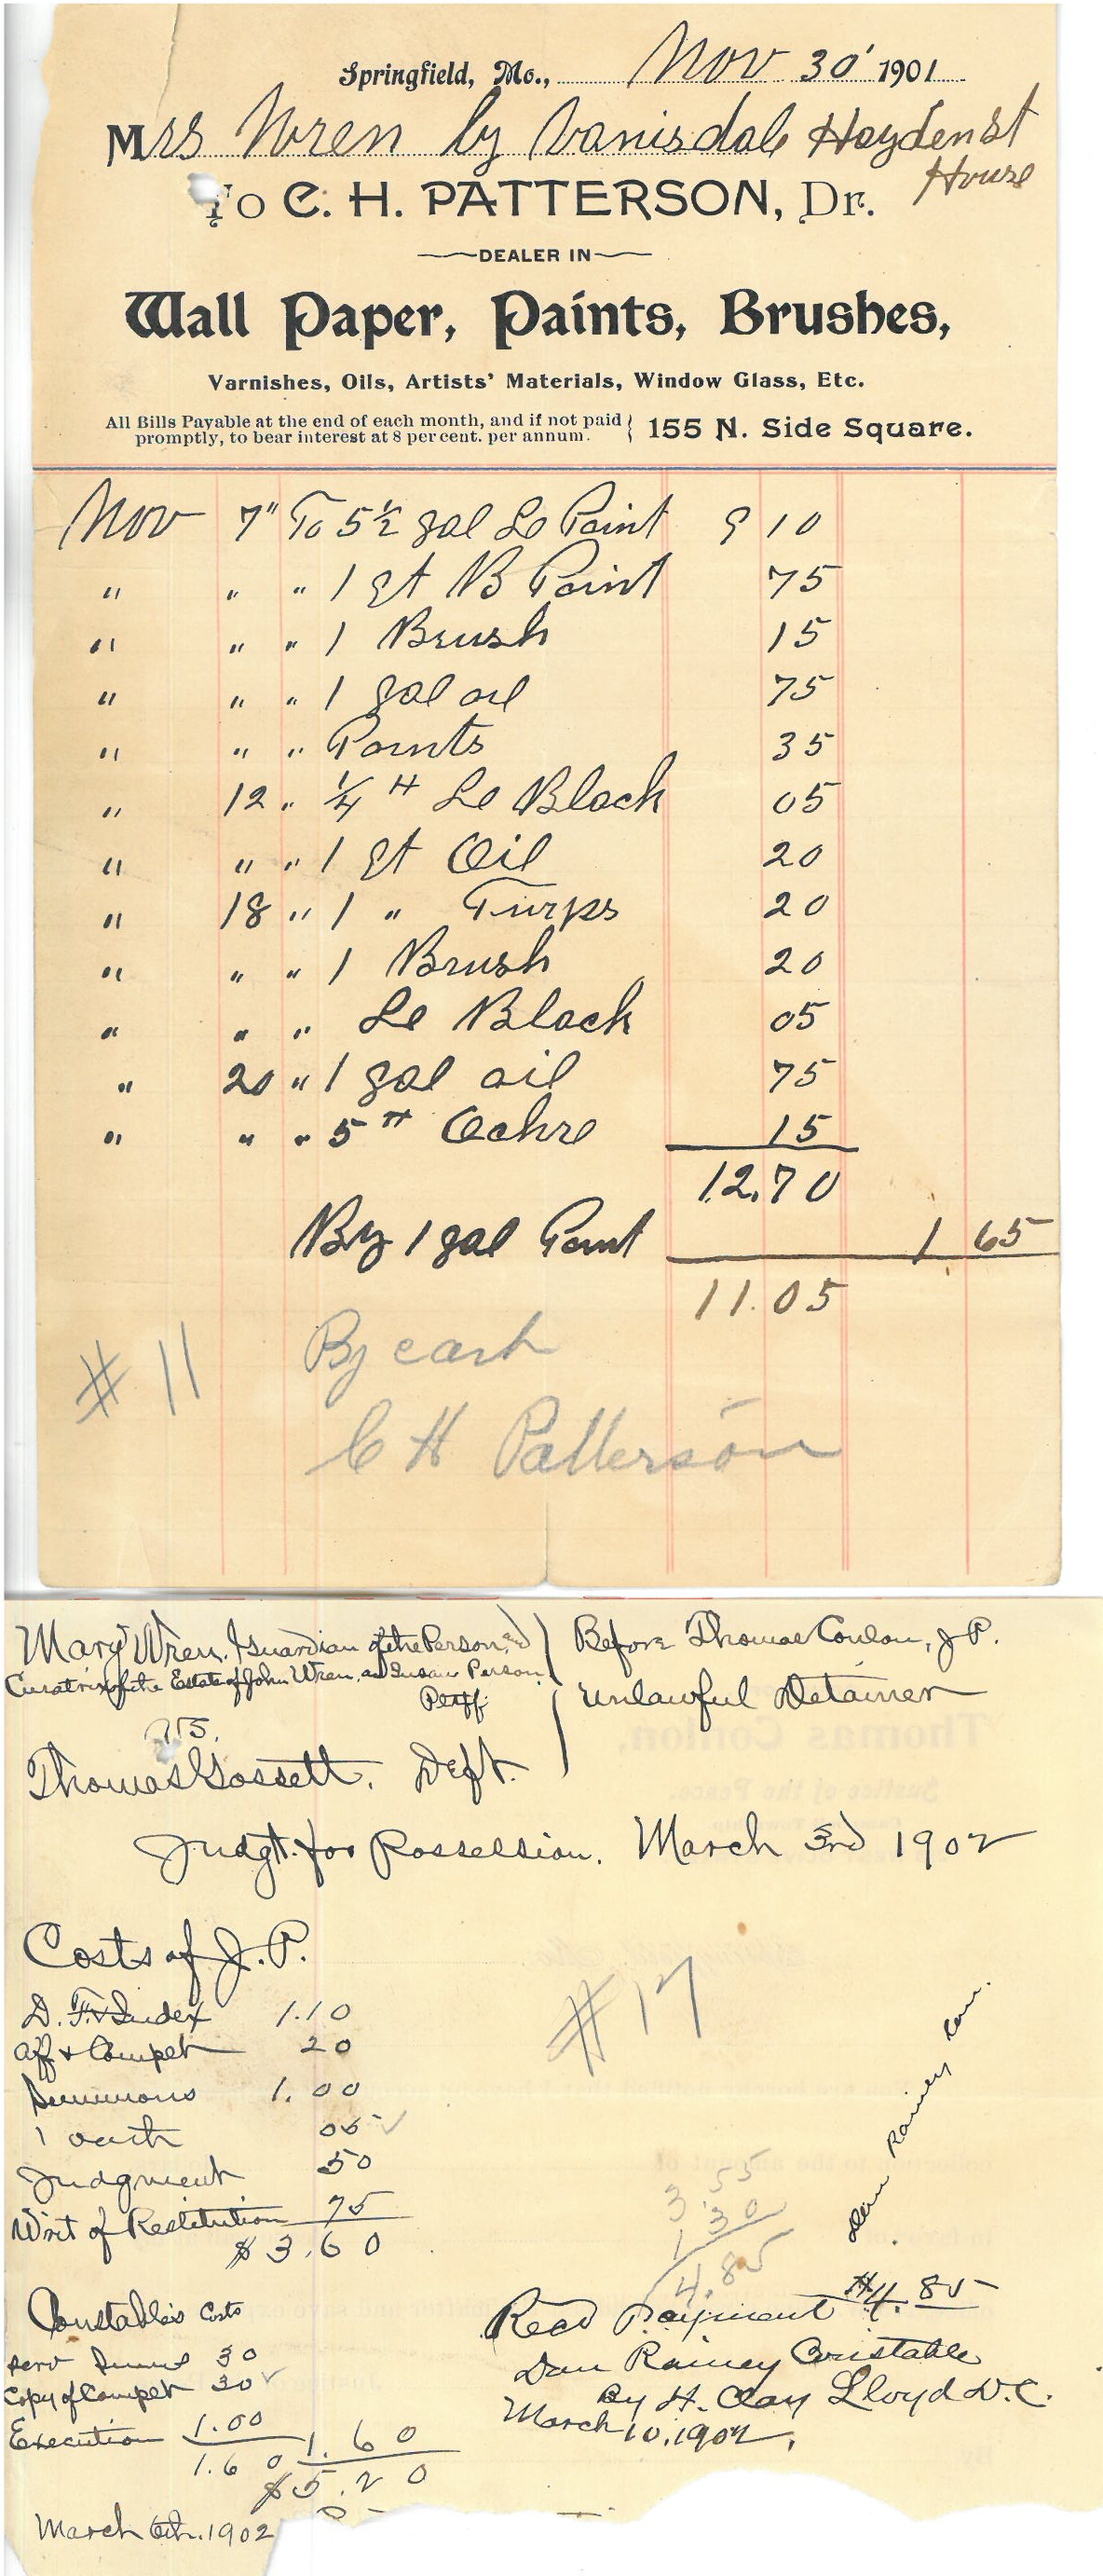 Springfield, Mo., Nov 30" 1901
Mrs Wren by Vanisdale Hayden st
House
To C. H. PATTERSON, Dr.
DEALER IN
Wall Paper, Paints, Brushes,
Varnishes, Oils, Artists' Materials, Window Glass, Etc.
All Bills Payable at the end of each month, and if not paid
promptly, to bear interest at 8 per cent. per annum.
155 N. Side Square.
Nov 7" To 5½ gal Le Paint 9 10
" " " 1 qt NB Paint 75
" " " 1 Brush 15
" " " 1 gal oil 75
" " " Paints 35
" 12 " ¼ # Le Black 05
" " " 1 qt Oil 20
" 18 " 1 " Turps 20
" " " 1 Brush 20
" " " Le Black 05
" 20 " 1 gal oil 75
" " " 5 # Ochre 15
12.70
By 1 gal Paint 1 65
11.05
# 11 By cash
C H Patterson
Mary Wren, Guardian of the Person and
Curatrix of the Estate of John Wren, an Insane Person.
Plttf.
vs.
Thomas Gossett. Deft.
Before Thomas Conlon, J.P.
Unlawful Detainer
Judgt. for Possession. March 3rd 1902
Costs of J. P.
D. F. & Index 1.10
Aff & Compt 20
Summons 1.00
1 oath 05
Judgment 50
Writ of Restitution 75
$ 3.60
# 17
Constable's Costs
Serv Summs 30
Copy of Compt 30
Execution 1.00
1.60 1.60
$ 5.20
March 6th. 1902
3.55
1 30
4.85
Dan Rainey Con.
Recd Payment $4.85
Dan Rainey Constable
By H. Clay Lloyd D.C.
March 10, 1902.